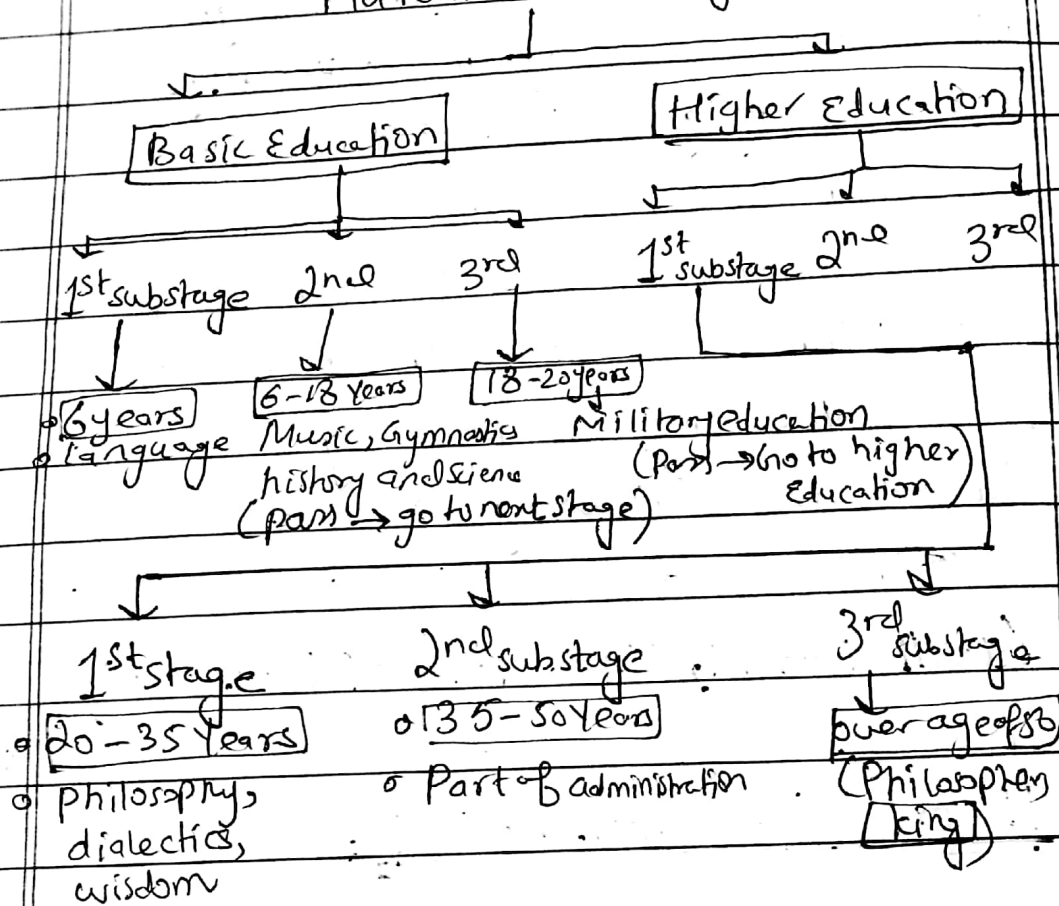 Basic Education
Higher Education
1st substage 2nd 3rd
1st substage 2nd 3rd
6 years
Language
6-18 Years
Music, Gymnastics
history and science
(pass → go to next stage)
18-20 years
Military education
(pass → Go to higher
Education)
1st stage
20-35 Years
Philosophy,
dialectics,
wisdom
2nd substage
35-50 Years
Part of administration
3rd substage
over age of 50
(Philosopher
king)